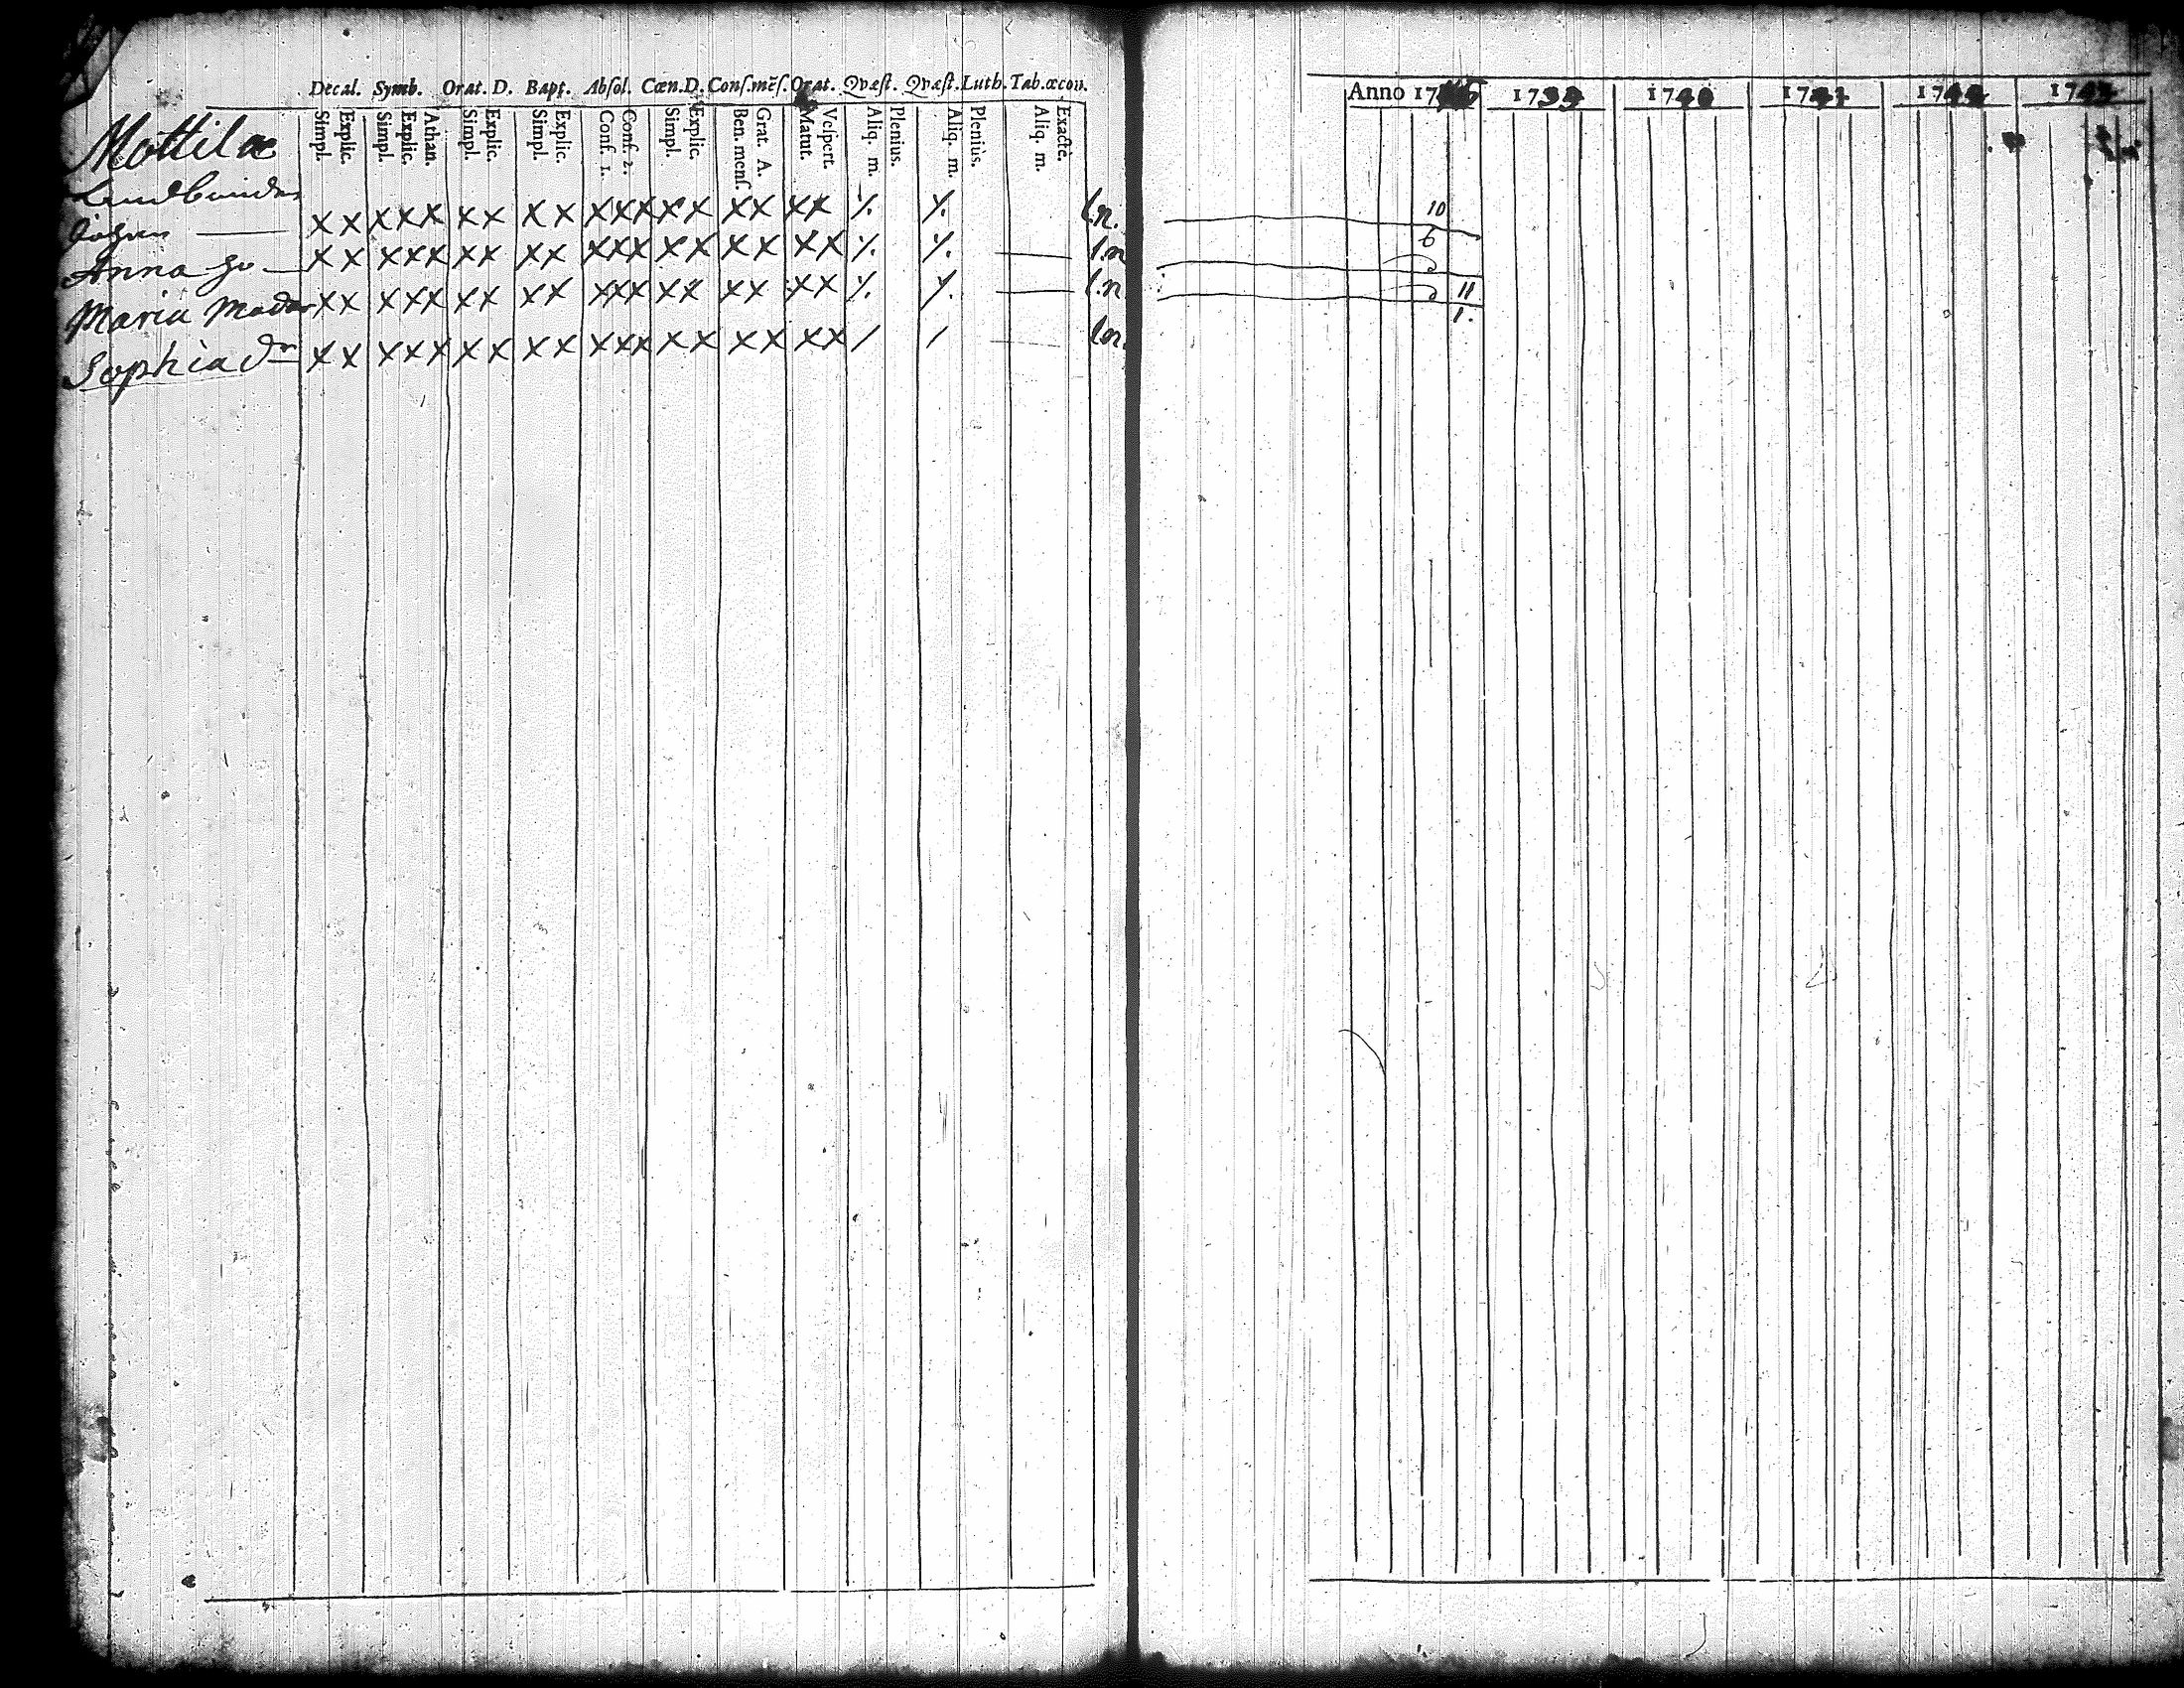 Decal. Symb. Orat. D. Bapt. Absol. Cœn. D. Cons. mẽs. Orat. Qvæst. Qvæst. Luth. Tab. œcon.
Simpl. Explic. Simpl. Explic. Athan. Simpl. Explic. Simpl. Explic. Conf. 1. Conf. 2. Simpl. Explic. Ben. mens. Grat. A. Matut. Vespert. Aliq. m. Plenius. Aliq. m. Plenius. Aliq. m. Exactè.
Mottilæ
Johan x x x x x x x x x x x x x x x x x x l.n.
Anna x x x x x x x x x x x x x x x x x x l.n
Maria x x x x x x x x x x x x x x x x x x l.n.
Sophia dr x x x x x x x x x x x x x x x x x x / / ln.
Anno 17 1739 1740 1741 174 174
10
6
11
1.